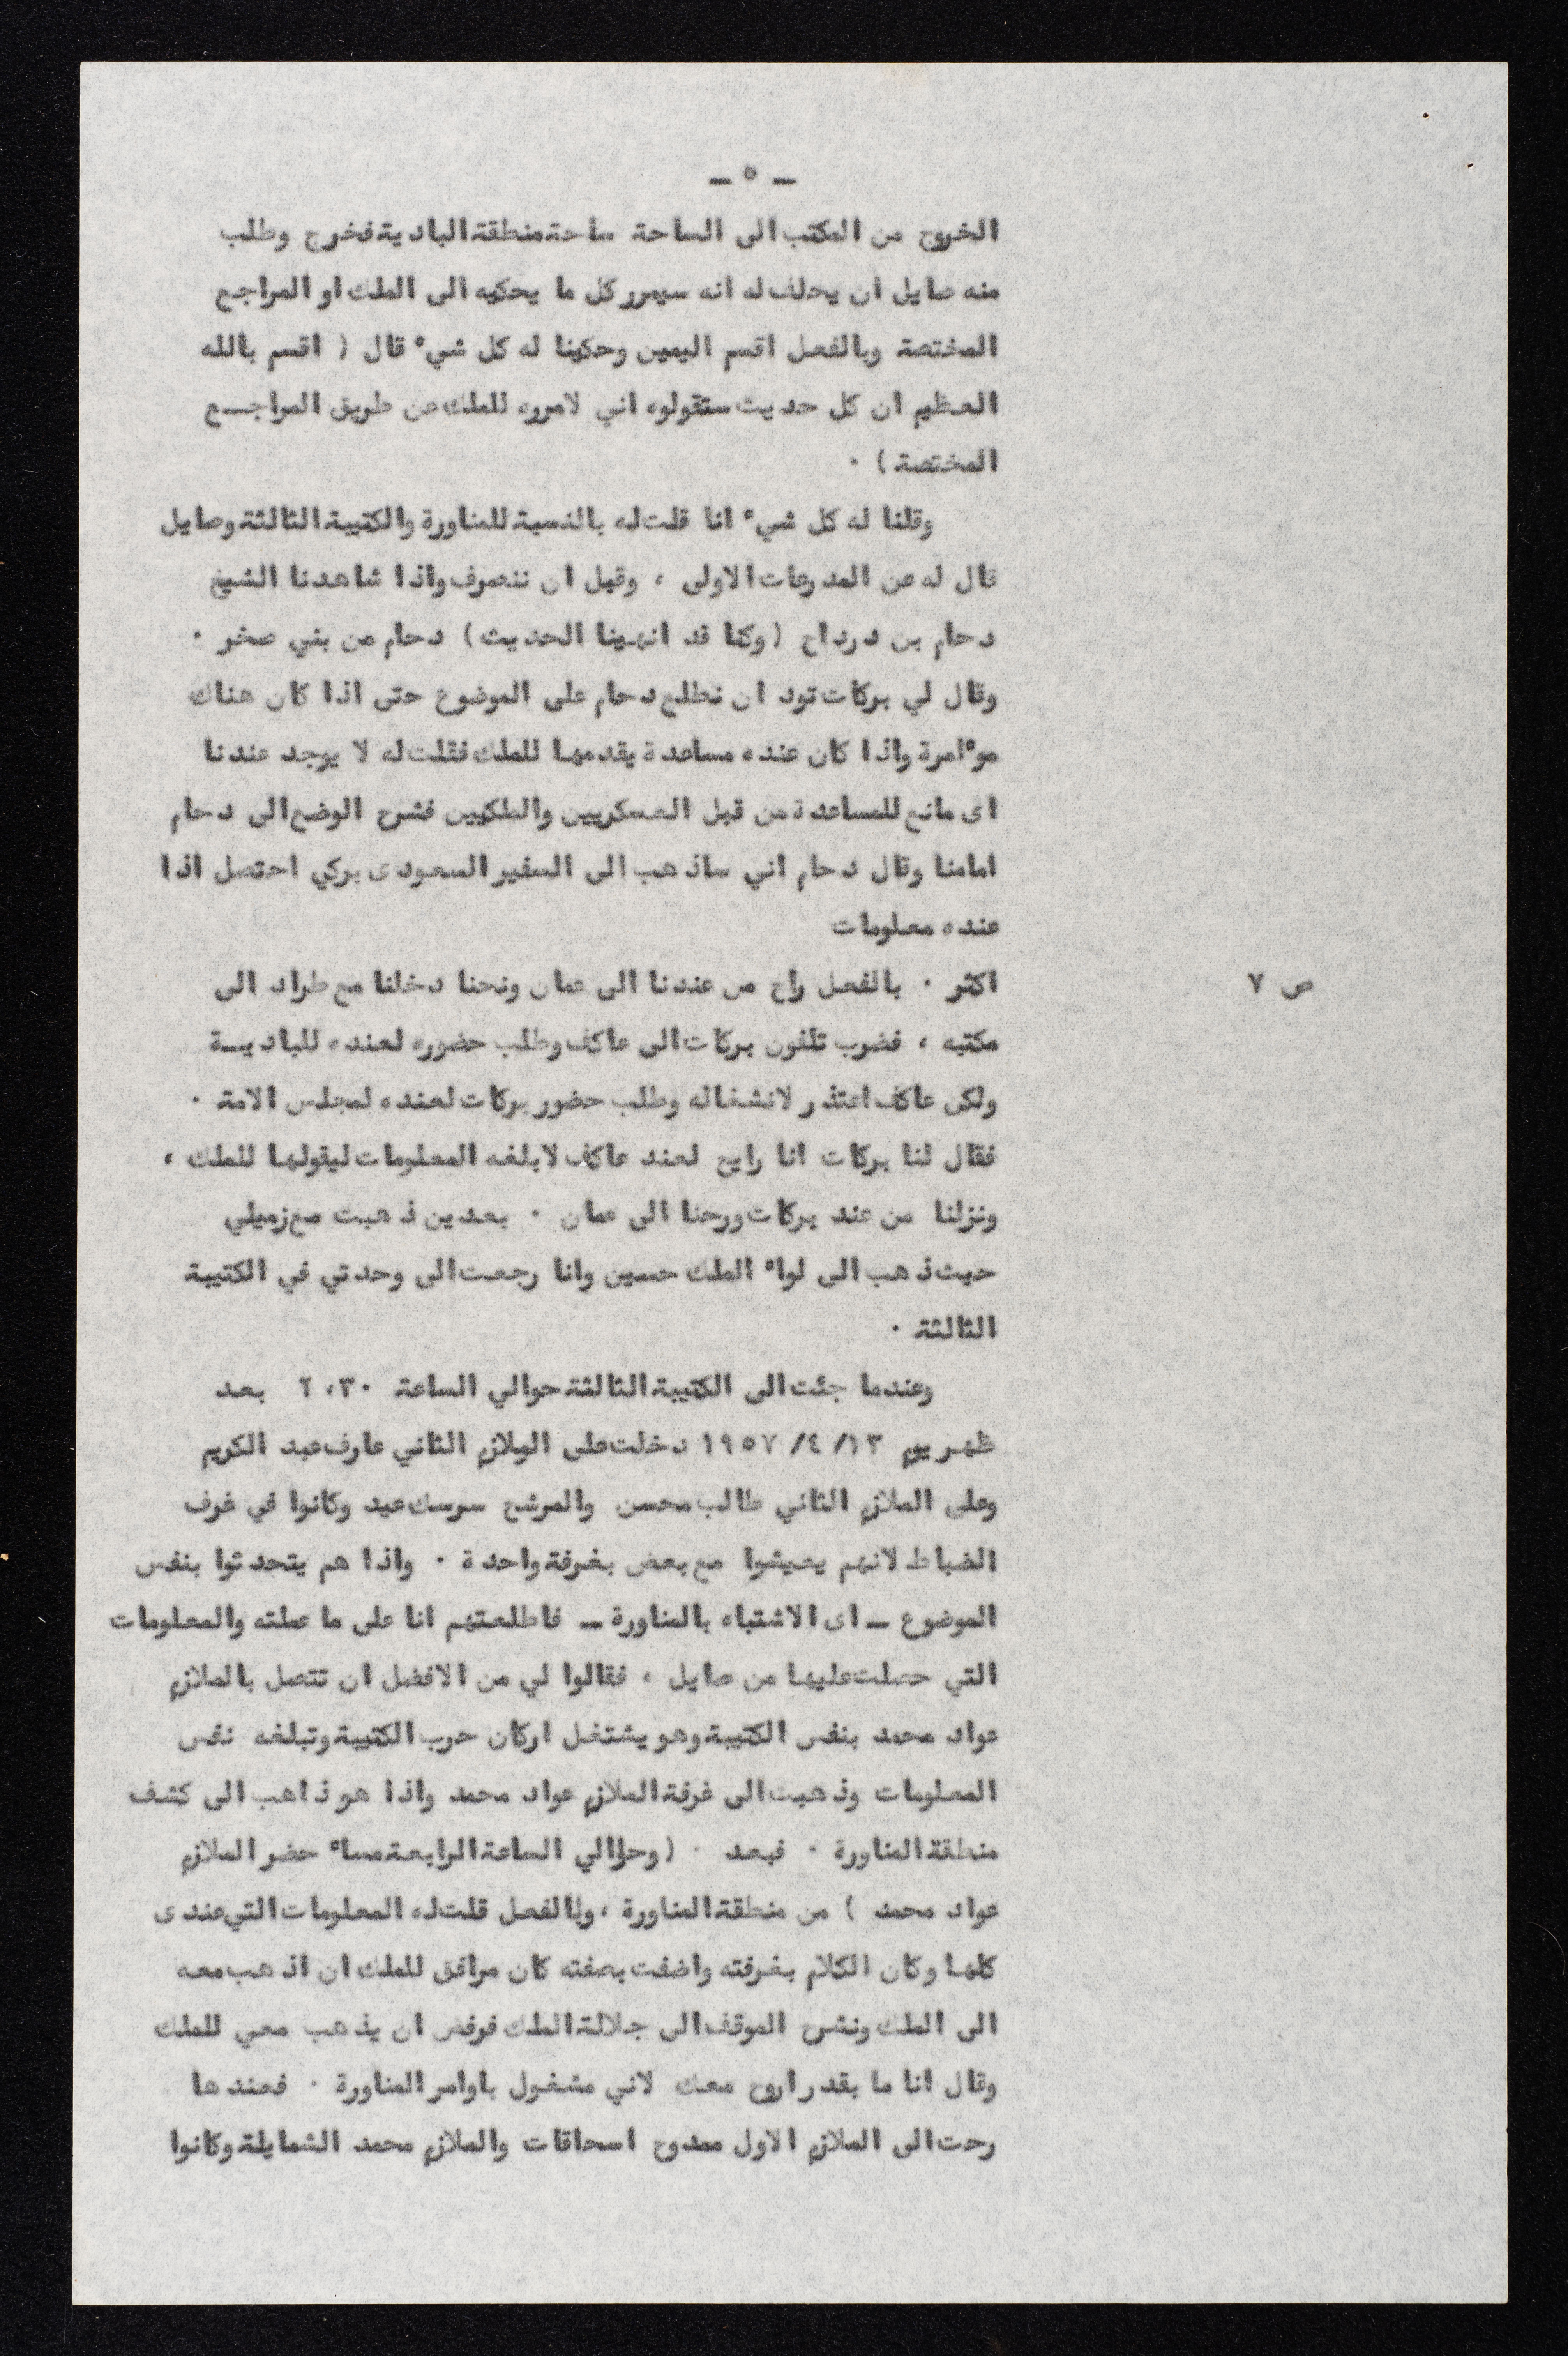 ـ ٥ ـ
الخروج من المكتب الى الساحة ساحة منطقة البادية فخرج وطلب
منه صايل ان يحلف له انه سيمرر كل ما يحكيه الى الملك او المراجع
المختصة وبالفعل اقسم اليمين وحكينا له كل شيء قال ( اقسم بالله
العظيم ان كل حديث ستقولوه اني لامرره للملك عن طريق المراجـع
المختصة ) ٠
وقلنا له كل شيء انا قلت له بالنسبة للمناورة والكتيبة الثالثة وصايل
قال له عن المدرعات الاولى ، وقبل ان ننصرف واذا شاهدنا الشيخ
دحام بن درداح ( وكنا قد انهينا الحديث ) دحام من بني صخر ٠
وقال لي بركات تود ان نطلع دحام على الموضوع حتى اذا كان هناك
موءامرة واذا كان عنده مساعدة يقدمها للملك فقلت له لا يوجد عندنا
اى مانع للمساعدة من قبل العسكريين والملكيين فشرح الوضع الى دحام
امامنا وقال دحام اني ساذهب الى السفير السعودى بركي احتصل اذا
عنده معلومات
ص ٧
اكثر ٠ بالفعل راح من عندنا الى عمان ونحنا دخلنا مع طراد الى
مكتبه ، فضرب تلفون بركات الى عاكف وطلب حضوره لعنده للباديـة
ولكن عاكف اعتذر لانشغاله وطلب حضور بركات لعنده لمجلس الامة ٠
فقال لنا بركات انا رايح لعند عاكف لابلغه المعلومات ليقولها للملك ،
ونزلنا من عند بركات ورحنا الى عمان ٠ بعدين ذهبت مع زميلي
حيث ذهب الى لواء الملك حسين وانا رجعت الى وحدتي في الكتيبة
الثالثة ٠
وعندما جئت الى الكتيبة الثالثة حوالي الساعة ٢،٣٠ بعد
ظهر يوم ١٣/ ٤/ ١٩٥٧ دخلت على الملازم الثاني عارف عبد الكريم
وعلى الملازم الثاني طالب محسن والمرشح سرسك عيد وكانوا في غرف
الضباط لانهم يعيشوا مع بعض بغرفة واحدة ٠ واذا هم يتحدثوا بنفس
الموضوع ـ اى الاشتباه بالمناورة ـ فاطلعتهم انا على ما عملته والمعلومات
التي حصلت عليها من صايل ، فقالوا لي من الافضل ان تتصل بالملازم
عواد محمد بنفس الكتيبة وهو يشتغل اركان حرب الكتيبة وتبلغه نفس
المعلومات وذهبت الى غرفة الملازم عواد محمد واذا هو ذاهب الى كشف
منطقة المناورة ٠ فبعد ٠ ( وحوالي الساعة الرابعة مساء حضر الملازم
عواد محمد ) من منطقة المناورة ، وبالفعل قلت له المعلومات التي عندى
كلها وكان الكلام بغرفته واضفت بصفته كان مرافق للملك ان اذهب معه
الى الملك ونشرح الموقف الى جلالة الملك فرفض ان يذهب معي للملك
وقال انا ما بقدر اروح معك لاني مشغول باوامر المناورة ٠ فعندها
رحت الى الملازم الاول ممدوح اسحاقات والملازم محمد الشمايلة وكانوا